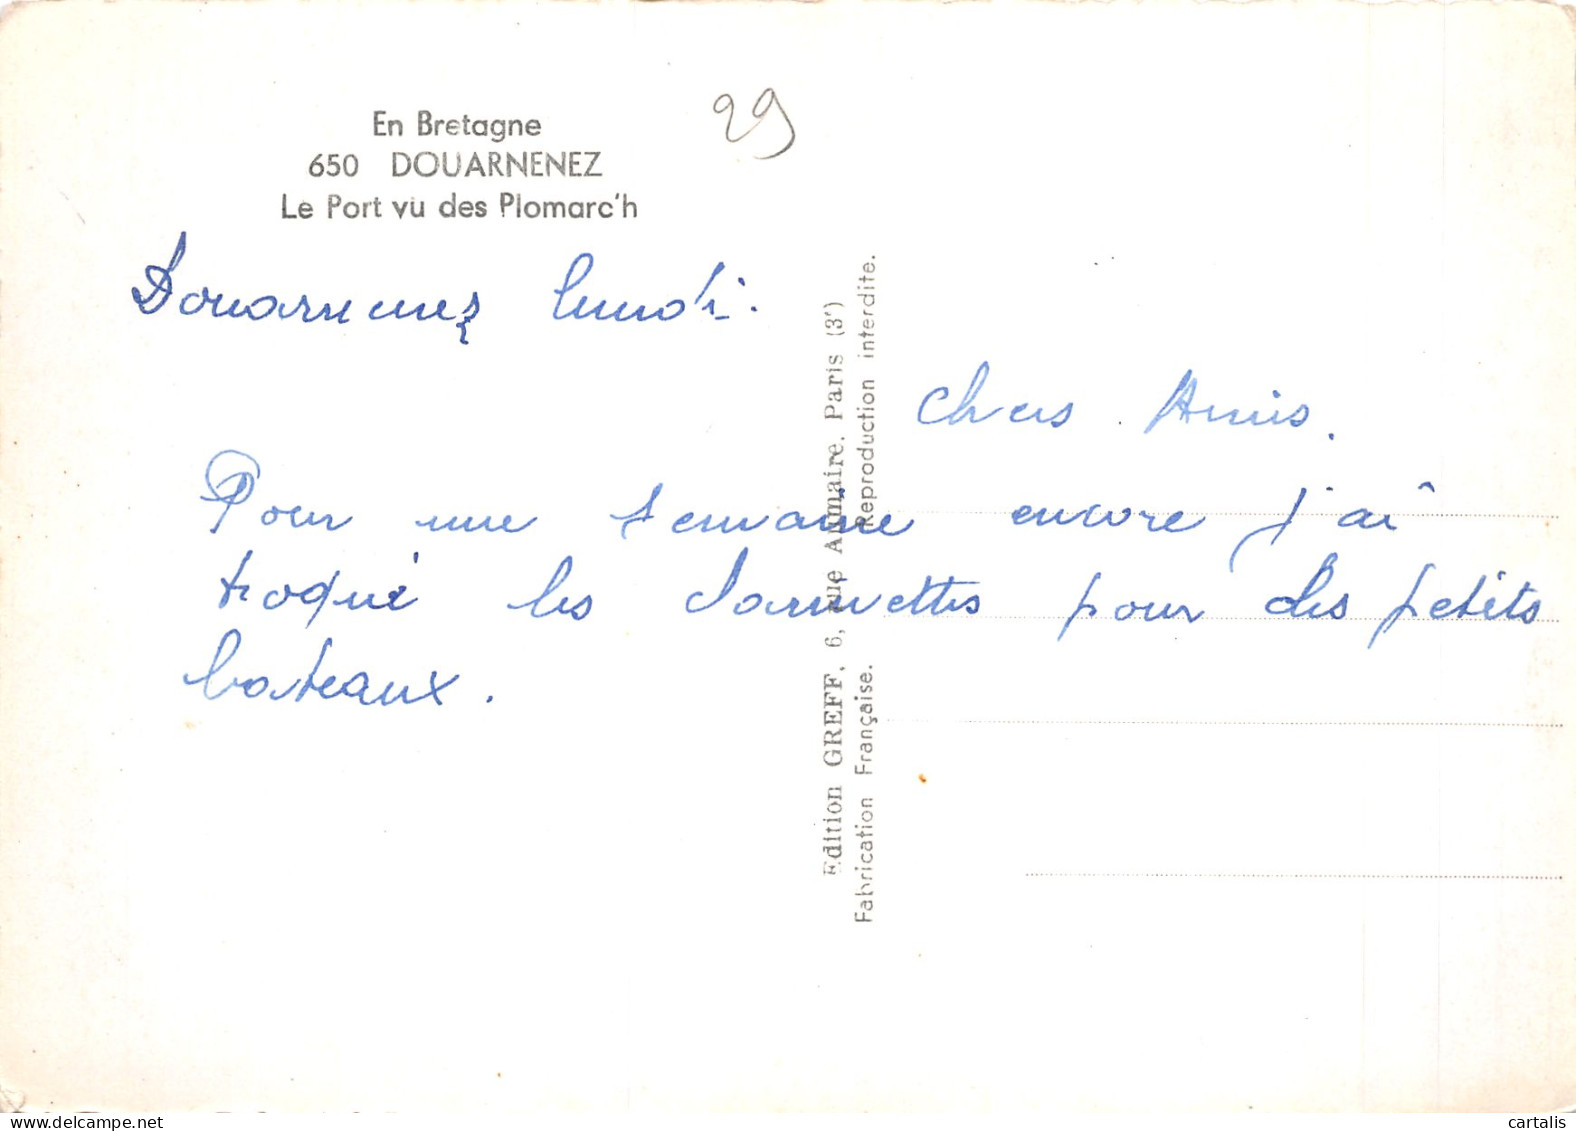 En Bretagne
650 DOUARNENEZ
Le Port vu des Plomarc'h
29
Douarnenez lundi.
Chers Amis.
Pour une semaine encore j'ai
troqué les clarinettes pour des petits
bateaux.
Edition GREFF, 6, rue Aumaire, Paris (3e)
Fabrication Française. Reproduction interdite.
www.delcampe.net
cartalis